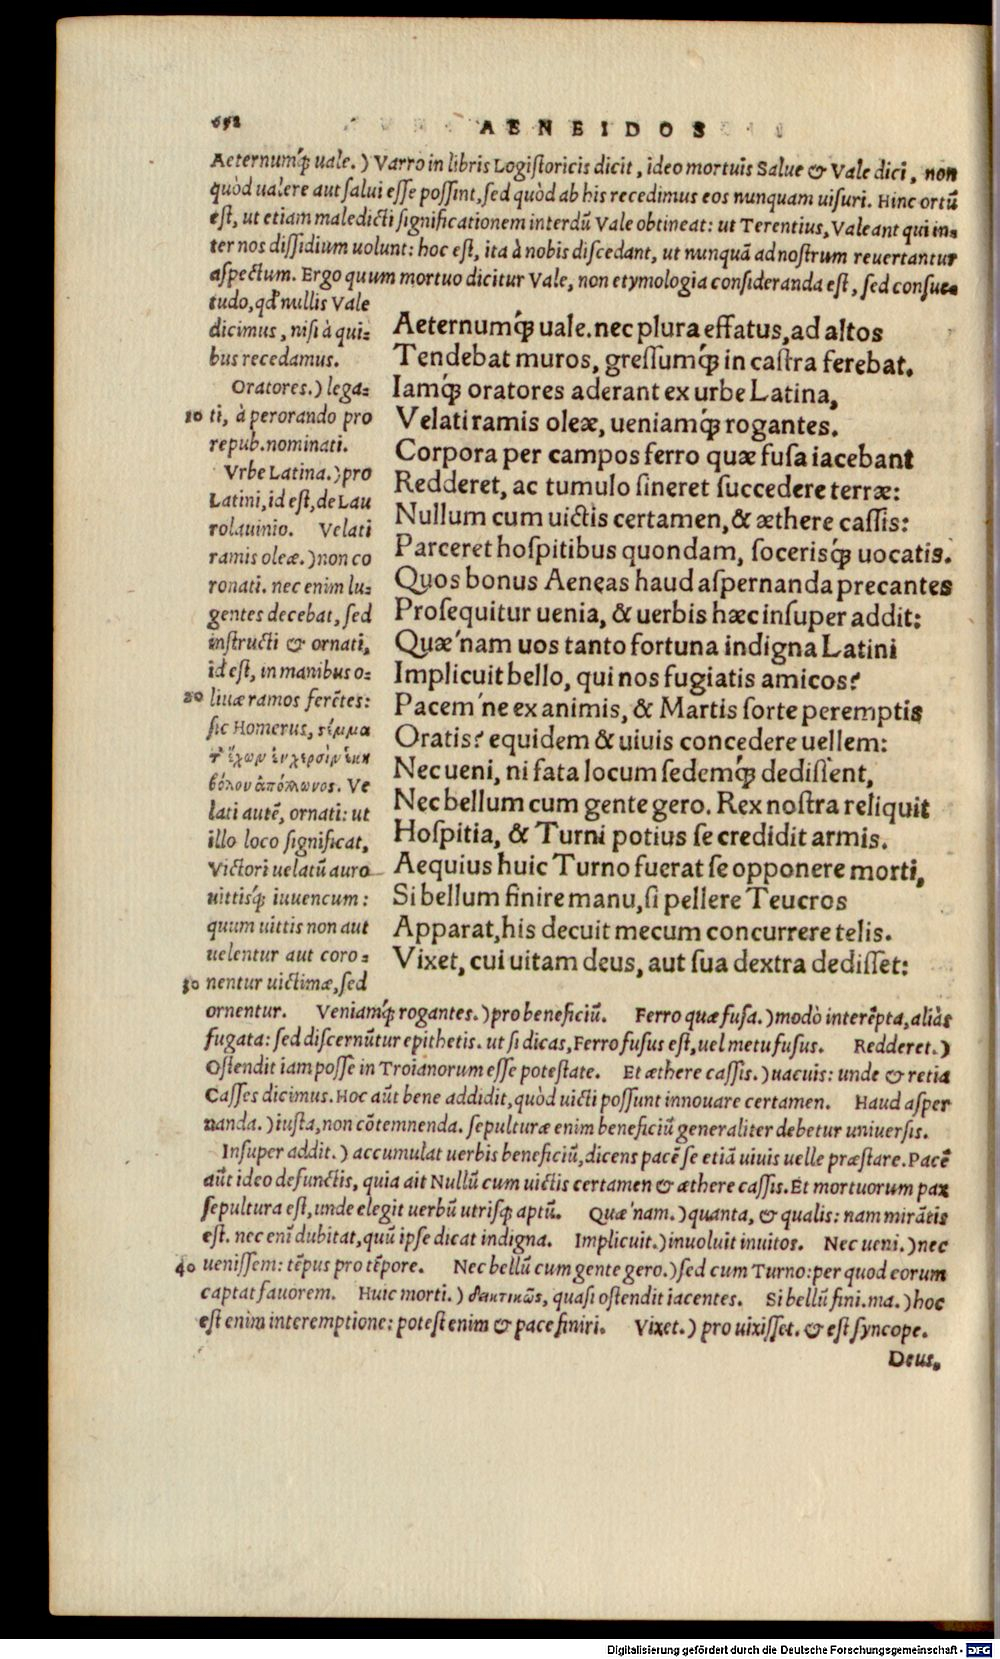 652
AENEIDOS
Aeternumq́ꝫ uale.) Varro in libris Logiſtoricis dicit, ideo mortuis Salue & Vale dici, non
quòd ualere aut ſalui eſſe poſſint, ſed quòd ab his recedimus eos nunquam uiſuri. Hinc ortũ
eſt, ut etiam maledicti ſignificationem interdũ Vale obtineat: ut Terentius, Valeant qui in-
ter nos diſſidium uolunt: hoc eſt, ita à nobis diſcedant, ut nunquã ad noſtrum reuertantur
aſpectum. Ergo quum mortuo dicitur Vale, non etymologia conſideranda eſt, ſed conſue-
tudo, qd' nullis Vale
dicimus, niſi à qui-
bus recedamus.
Oratores.) lega-
10 ti, à perorando pro
repub. nominati.
Vrbe Latina.) pro
Latini, id eſt, de Lau
rolauinio. Velati
ramis oleæ.) non co
ronati. nec enim lu-
gentes decebat, ſed
inſtructi & ornati,
id eſt, in manibus o-
20 liuæ ramos ferẽtes:
ſic Homerus, ςέμμα
τ' ἔχων ἐν χερσὶν ἑκη
βόλου ἀπόλλωνος. Ve
lati autẽ, ornati: ut
illo loco ſignificat,
Victori uelatũ auro
uittisq́ꝫ iuuencum:
quum uittis non aut
uelentur aut coro-
30 nentur uictimæ, ſed
Aeternumq́ꝫ uale. nec plura effatus, ad altos
Tendebat muros, greſſumq́ꝫ in caſtra ferebat.
Iamq́ꝫ oratores aderant ex urbe Latina,
Velati ramis oleæ, ueniamq́ꝫ rogantes.
Corpora per campos ferro quæ fuſa iacebant
Redderet, ac tumulo ſineret ſuccedere terræ:
Nullum cum uictis certamen, & æthere caſſis:
Parceret hoſpitibus quondam, ſocerisq́ꝫ uocatis.
Quos bonus Aeneas haud aſpernanda precantes
Proſequitur uenia, & uerbis hæc inſuper addit:
Quæ'nam uos tanto fortuna indigna Latini
Implicuit bello, qui nos fugiatis amicos?
Pacem'ne ex animis, & Martis ſorte peremptis
Oratis? equidem & uiuis concedere uellem:
Nec ueni, ni fata locum ſedemq́ꝫ dediſſent,
Nec bellum cum gente gero. Rex noſtra reliquit
Hoſpitia, & Turni potius ſe credidit armis.
Aequius huic Turno fuerat ſe opponere morti,
Si bellum finire manu, ſi pellere Teucros
Apparat, his decuit mecum concurrere telis.
Vixet, cui uitam deus, aut ſua dextra dediſſet:
ornentur. Veniamq́ꝫ rogantes.) pro beneficiũ. Ferro quæ fuſa.) modò interẽpta, aliàs
fugata: ſed diſcernũtur epithetis. ut ſi dicas, Ferro fuſus eſt, uel metu fuſus. Redderet.)
Oſtendit iam poſſe in Troianorum eſſe poteſtate. Et æthere caſſis.) uacuis: unde & retia
Caſſes dicimus. Hoc aũt bene addidit, quòd uicti poſſunt innouare certamen. Haud aſper
nanda.) iuſta, non cõtemnenda. ſepulturæ enim beneficiũ generaliter debetur uniuerſis.
Inſuper addit.) accumulat uerbis beneficiũ, dicens pacẽ ſe etiã uiuis uelle præſtare. Pacẽ
aũt ideo defunctis, quia ait Nullũ cum uictis certamen & æthere caſſis. Et mortuorum pax
ſepultura eſt, unde elegit uerbũ utriſqꝫ aptũ. Quæ'nam.) quanta, & qualis: nam mirãtis
eſt. nec eni dubitat, quũ ipſe dicat indigna. Implicuit.) inuoluit inuitos. Nec ueni.) nec
40 ueniſſem: tẽpus pro tẽpore. Nec bellũ cum gente gero.) ſed cum Turno: per quod eorum
captat fauorem. Huic morti.) δεικτικῶς, quaſi oſtendit iacentes. Si bellũ fini. ma.) hoc
eſt enim interemptione: poteſt enim & pace finiri. Vixet.) pro uixiſſet. & eſt ſyncope.
Deus,
Digitalisierung gefördert durch die Deutsche Forschungsgemeinschaft - DFG